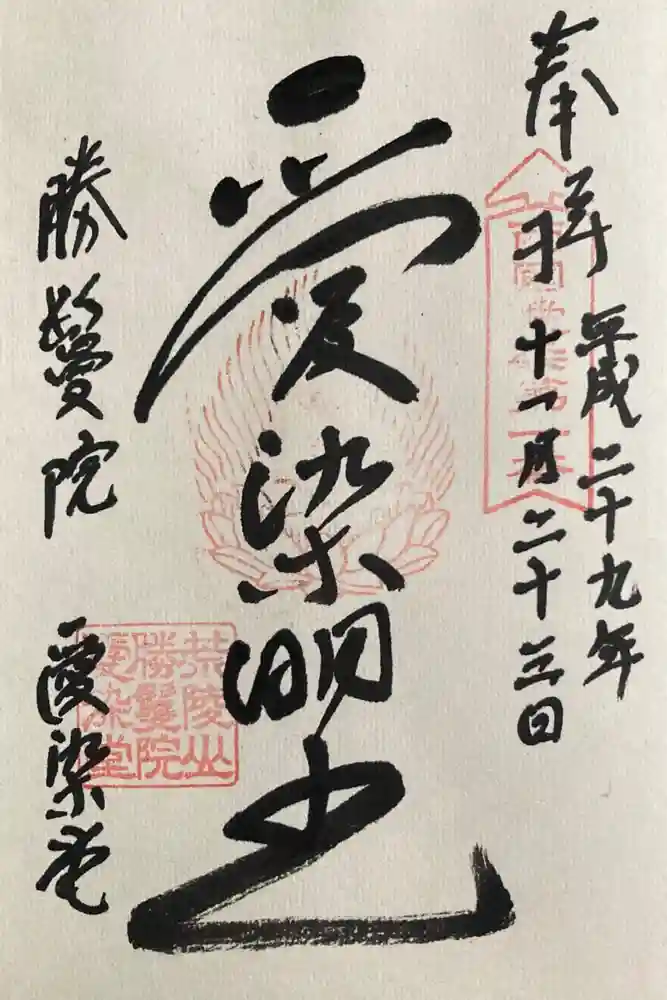 奉拝
平成二十九年
十一月二十三日
西國愛染第一番
愛染明王
荒陵山
勝鬘院
愛染堂
勝鬘院
愛染堂